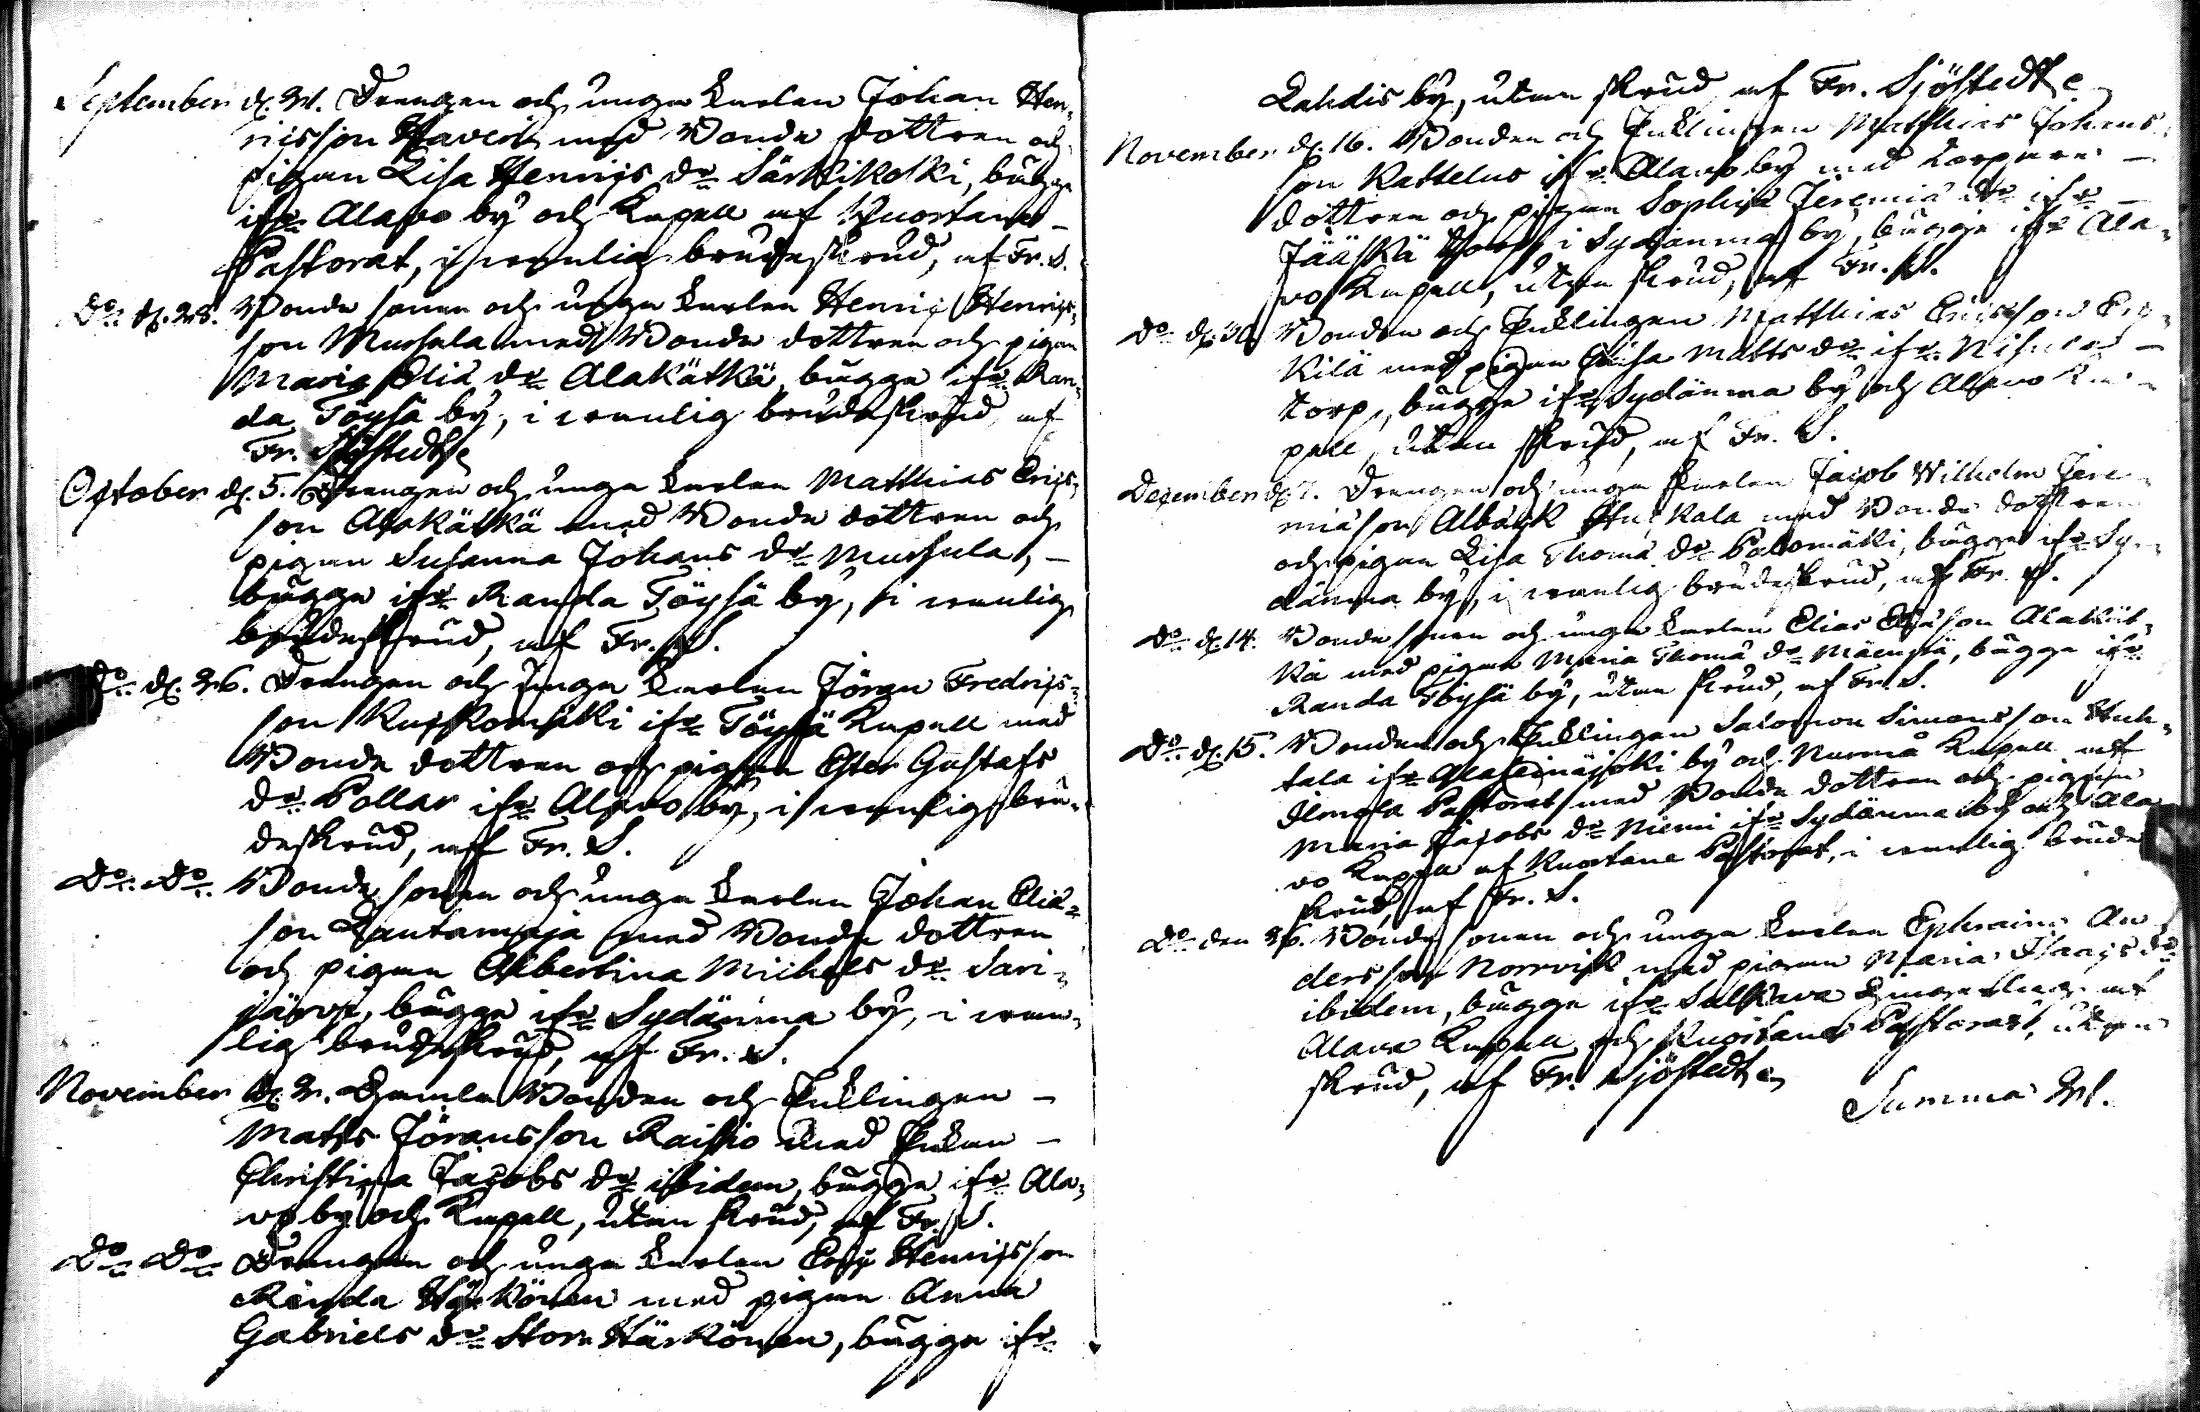 September d. 21. Drengen och unga karlen Johan Hen-
ricsson Haveri med Bonde dottren och
pigan Lisa Henrics dr Särkikoski, bägge
ifr. Alavo by och Kapell af Kuortane
Pastorat, i vanlig brudeskrud, af Fr. S.
Do d. 28. Bonde sonen och unga karlen Henric Henrics-
son Mursula med Bonde dottren och pigan
Maria Eliæ dr Alakätkä, bägge ifr. Ran-
da Töysä by, i vanlig brudeskrud, af
Fr. Sjöstedt
October d. 5. Drengen och unga karlen Matthias Erics-
son Alakätkä med Bonde dottren och
pigan Susanna Johans dr Mursula, -
bägge ifr. Randa Töysä by, i vanlig
brudeskrud, af Fr. S.
Do d. 26. Drengen och unga karlen Jöran Fredrics-
son Kuskomäki ifr Töysä Kapell med
Bonde dottren och pigan Ester Gustafs
dr Pollar ifr Alavo by, i vanlig bru-
deskrud, af Fr. S.
Do Do Bonde sonen och unga karlen Johan Eliæ-
son Rautamaja med Bonde dottren
och pigan Albertina Michels dr Sari-
järvi, bägge ifr Sydänma by, i van-
lig brudeskrud, af Fr. S.
November d. 2. Gamla Bonden och Enklingen -
Matts Jöransson Raisio med Enkan -
Christina Jacobs dr ibidem, bägge ifr Ala-
vo by och Kapell, utan skrud, af Fr. S.
Do Do Drengen och unga karlen Eric Henricsson
Renda Härkönen med pigan Anna
Gabriels dr Stora Härkönen, bägge ifr
Lahdis by, utan skrud af Fr. Sjöstedt
November d. 16. Bonden och Enklingen Matthias Johans-
son Kattelus ifr Alavo by med Torpare -
dottren och pigan Sophia Jeremiæ dr ifr -
Jääskä torp i Sydänma by, bägge ifr Ala-
vo Kapell, utan skrud, af Fr. S.
Do d. 30. Bonden och Enklingen Matthias Ericsson
Kilä med pigan Caisa Matts dr ifr
torp, bägge ifr Sydänma by och Alavo Ka-
pell, utan skrud, af Fr. S.
December d. 7. Drengen och unga karlen Jacob Wilhelm Jere-
miæson Albäck med Bonde dottren
och pigan Lisa Thomæ dr Palomäki, bägge ifr Sy-
dänma by, i vanlig brudeskrud, af Fr. S.
Do d. 14. Bonde sonen och unga karlen Elias Eliæson Alakät-
kä med pigan Maria Thomæ dr Mäenpä, bägge ifr
Randa Töysä by, utan skrud, af Fr. S.
Do d. 15. Bonden och Enklingen Salomon Simonsson Huh-
tala ifr Alaseinäjoki by och Nurmo Kapell af
Ilmola Pastorat med Bonde dottren och pigan
Maria Jacobs dr Niemi ifr Sydänma by och Ala-
vo Kapell af Kuortane Pastorat, i vanlig brude
skrud, af Fr. S.
Do den 26. Bonde sonen och unga karlen Ephraim An-
dersson Norrvik med pigan Maria Isaacs dr
ibidem, bägge ifr Sulkava af
Alavo Kapell och Kuortane Pastorat, utan
skrud, af Fr. Sjöstedt
Summa 21.